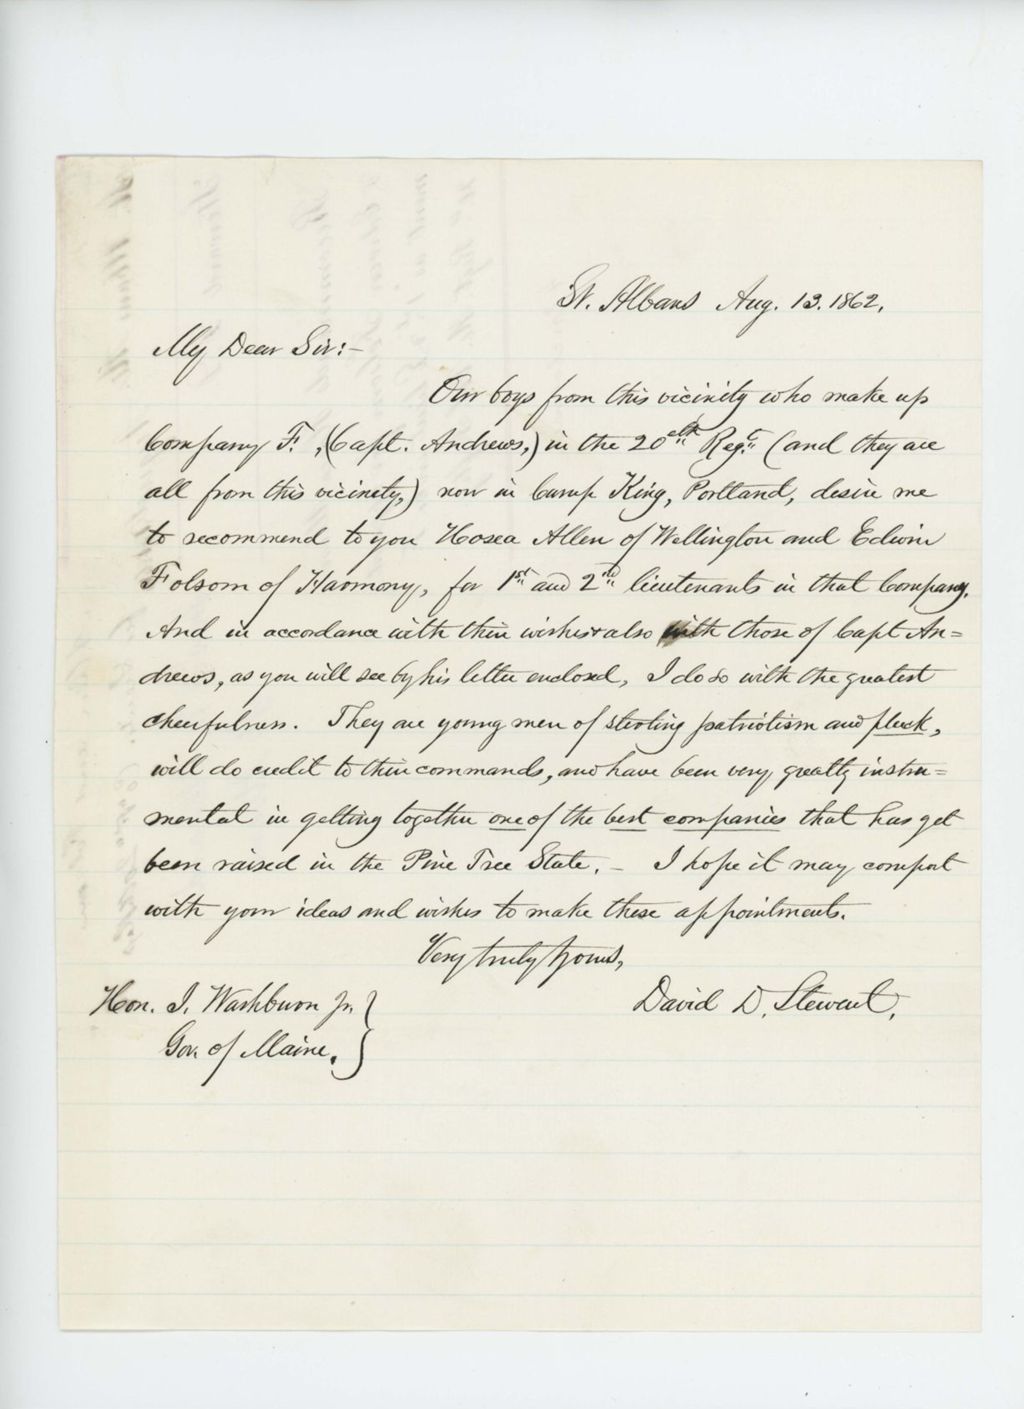 St. Albans Aug. 13. 1862.
My Dear Sir:-
Our boys from this vicinity who make up
Company F, (Capt. Andrews,) in the 20th Regt. (and they are
all from this vicinity,) now in Camp King, Portland, desire me
to recommend to you Hosea Allen of Wellington and Edwin
Folsom of Harmony, for 1st and 2nd lieutenants in that Company.
And in accordance with their wishes & also with those of Capt An=
drews, as you will see by his letter enclosed, I do so with the greatest
cheerfulness. They are young men of sterling patriotism and pluck,
will do credit to their commands, and have been very greatly instru=
mental in getting together one of the best companies that has yet
been raised in the Pine Tree State. - I hope it may comport
with your ideas and wishes to make these appointments.
Very truly Yours,
David D. Stewart.
Hon. I. Washburn Jr.
Gov. of Maine.